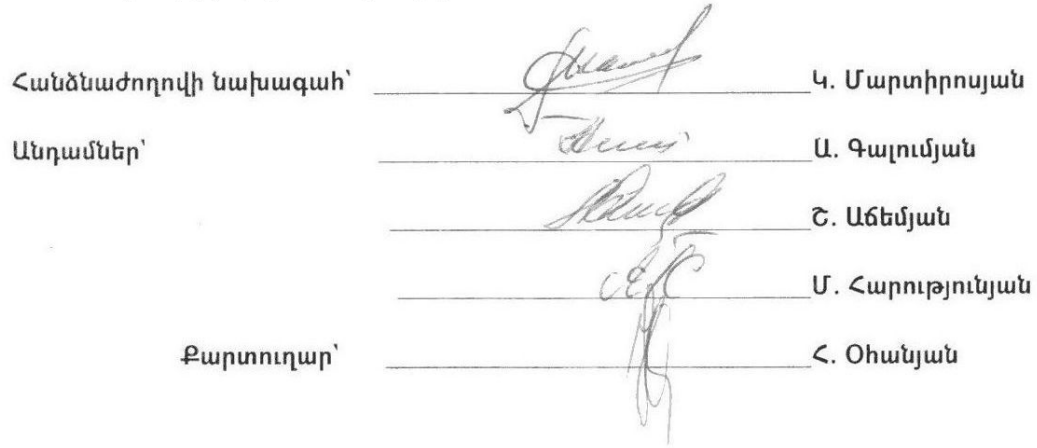 Հանձնաժողովի նախագահ՝ Կ. Մարտիրոսյան
Անդամներ՝ Ա. Գալումյան
Շ. Աճեմյան
Մ. Հարությունյան
Քարտուղար՝ Հ. Օհանյան